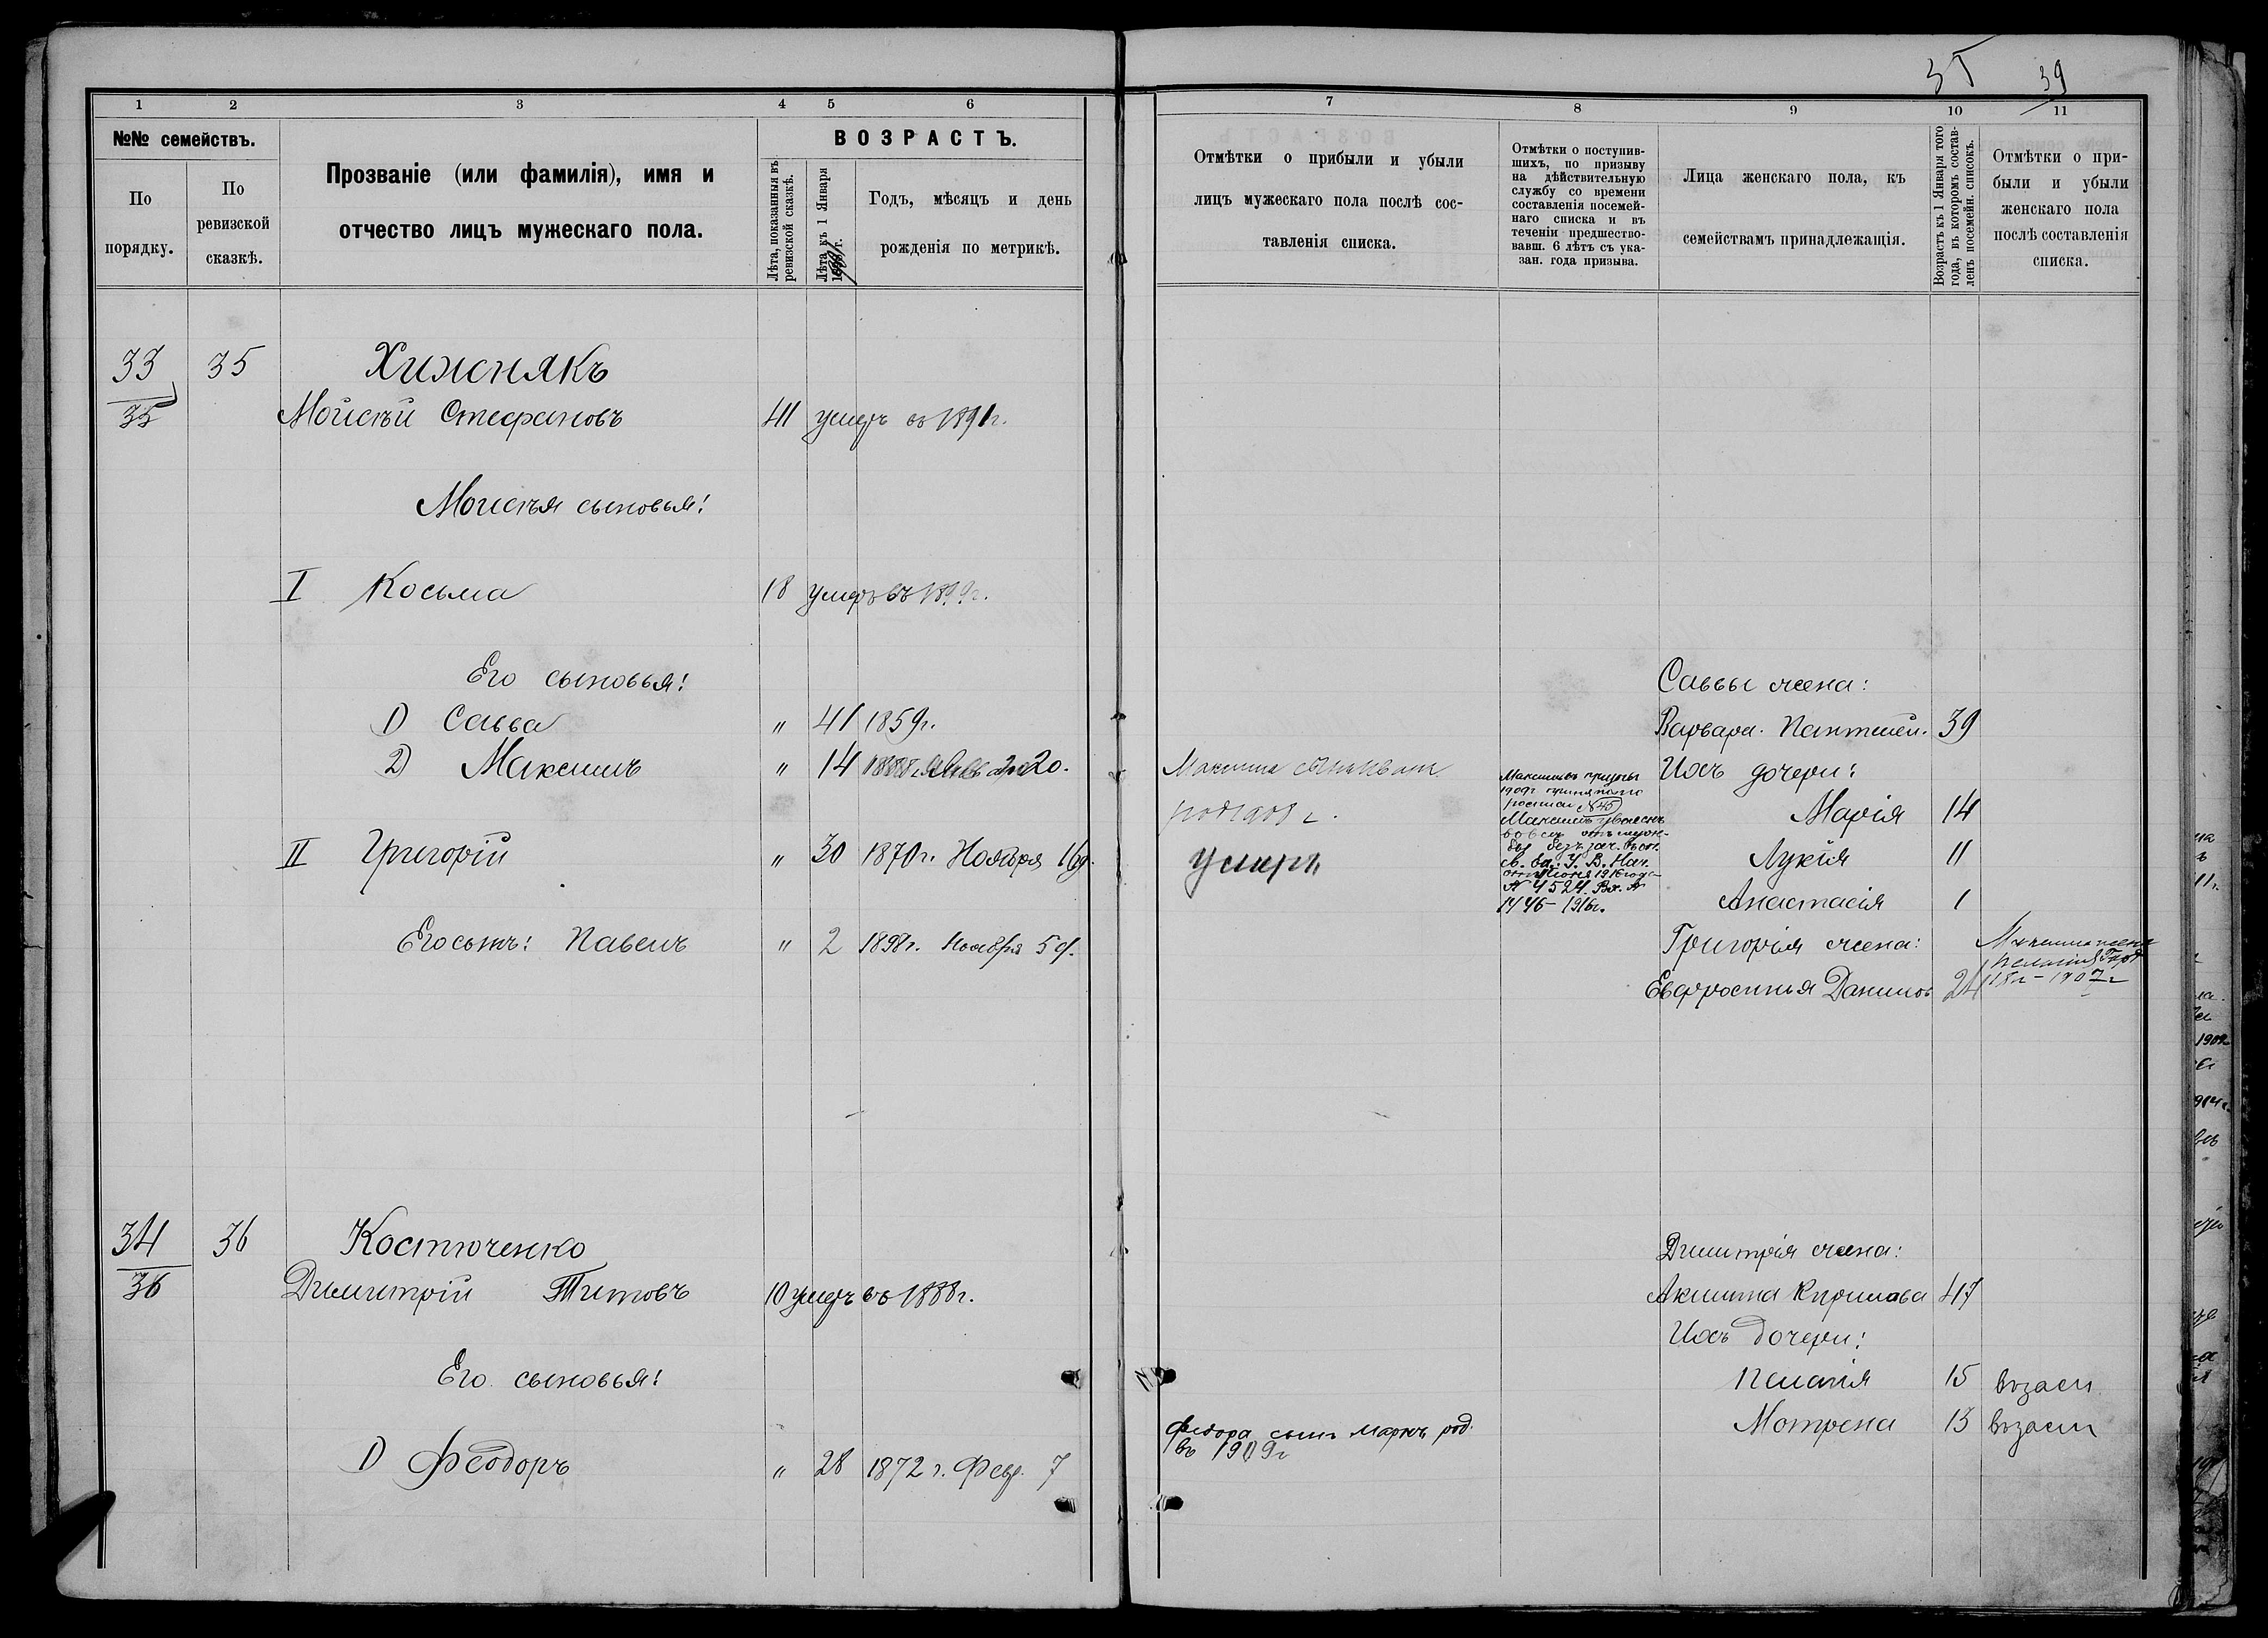 35 39
1 2 3 4 5 6
№№ семействъ.
По порядку.
По ревизской сказкѣ.
Прозваніе (или фамилія), имя и
отчество лицъ мужескаго пола.
ВОЗРАСТЪ.
Лѣта, показанныя въ
ревизской сказкѣ.
Лѣта къ 1 Января
г.
Годъ, мѣсяцъ и день
рожденія по метрикѣ.
33 35 Хижнякъ
35 Мойсѣй Стефановъ 41 умеръ въ 1891г.
Моисѣя сыновья:
I Косьма 18 умеръ въ 1899г.
Его сыновья:
1) Савва " 41 1859г.
2) Максимъ " 14 20.
II Григорій " 30 1870г. Ноября 16д.
Его сынъ: Павелъ " 2 1898г. Ноября 5д.
34 36 Костюченко
36 Димитрій Титовъ 10 умеръ въ 1888г.
Его сыновья:
1) Феодоръ " 28 1872г. Февр. 7
7 8 9 10 11
Отмѣтки о прибыли и убыли
лицъ мужескаго пола послѣ сос-
тавленія списка.
Отмѣтки о поступив-
шихъ, по призыву
на дѣйствительную
службу со времени
составленія посемей-
наго списка и въ
теченіи предшество-
вавш. 6 лѣтъ съ ука-
зан. года призыва.
Лица женскаго пола, къ
семействамъ принадлежащія.
Возрастъ къ 1 Января того
года, въ которомъ состав-
ленъ посемейн. списокъ.
Отмѣтки о при-
были и убыли
женскаго пола
послѣ составленія
списка.
Саввы жена:
Варвара Пантелей. 39
Ихъ дочери:
Марія 14
Лукія 11
Анастасія 1
Григорія жена:
Евфросинія Данилов 24
Максима сынъ
род 1908 г.
умеръ
Максимъ призыв
1909г
№45
Максимъ уволенъ
1916 года
№ 4524. Вх. №
1446 – 1916г.
Максима жена
Пелагія
18л – 1907г
Димитрія жена:
Акилина Кирилова 47
Ихъ дочери:
Пелагія 15 взаем
Мотрена 13 взаем
Федора сынъ Маркъ род.
въ 1909г